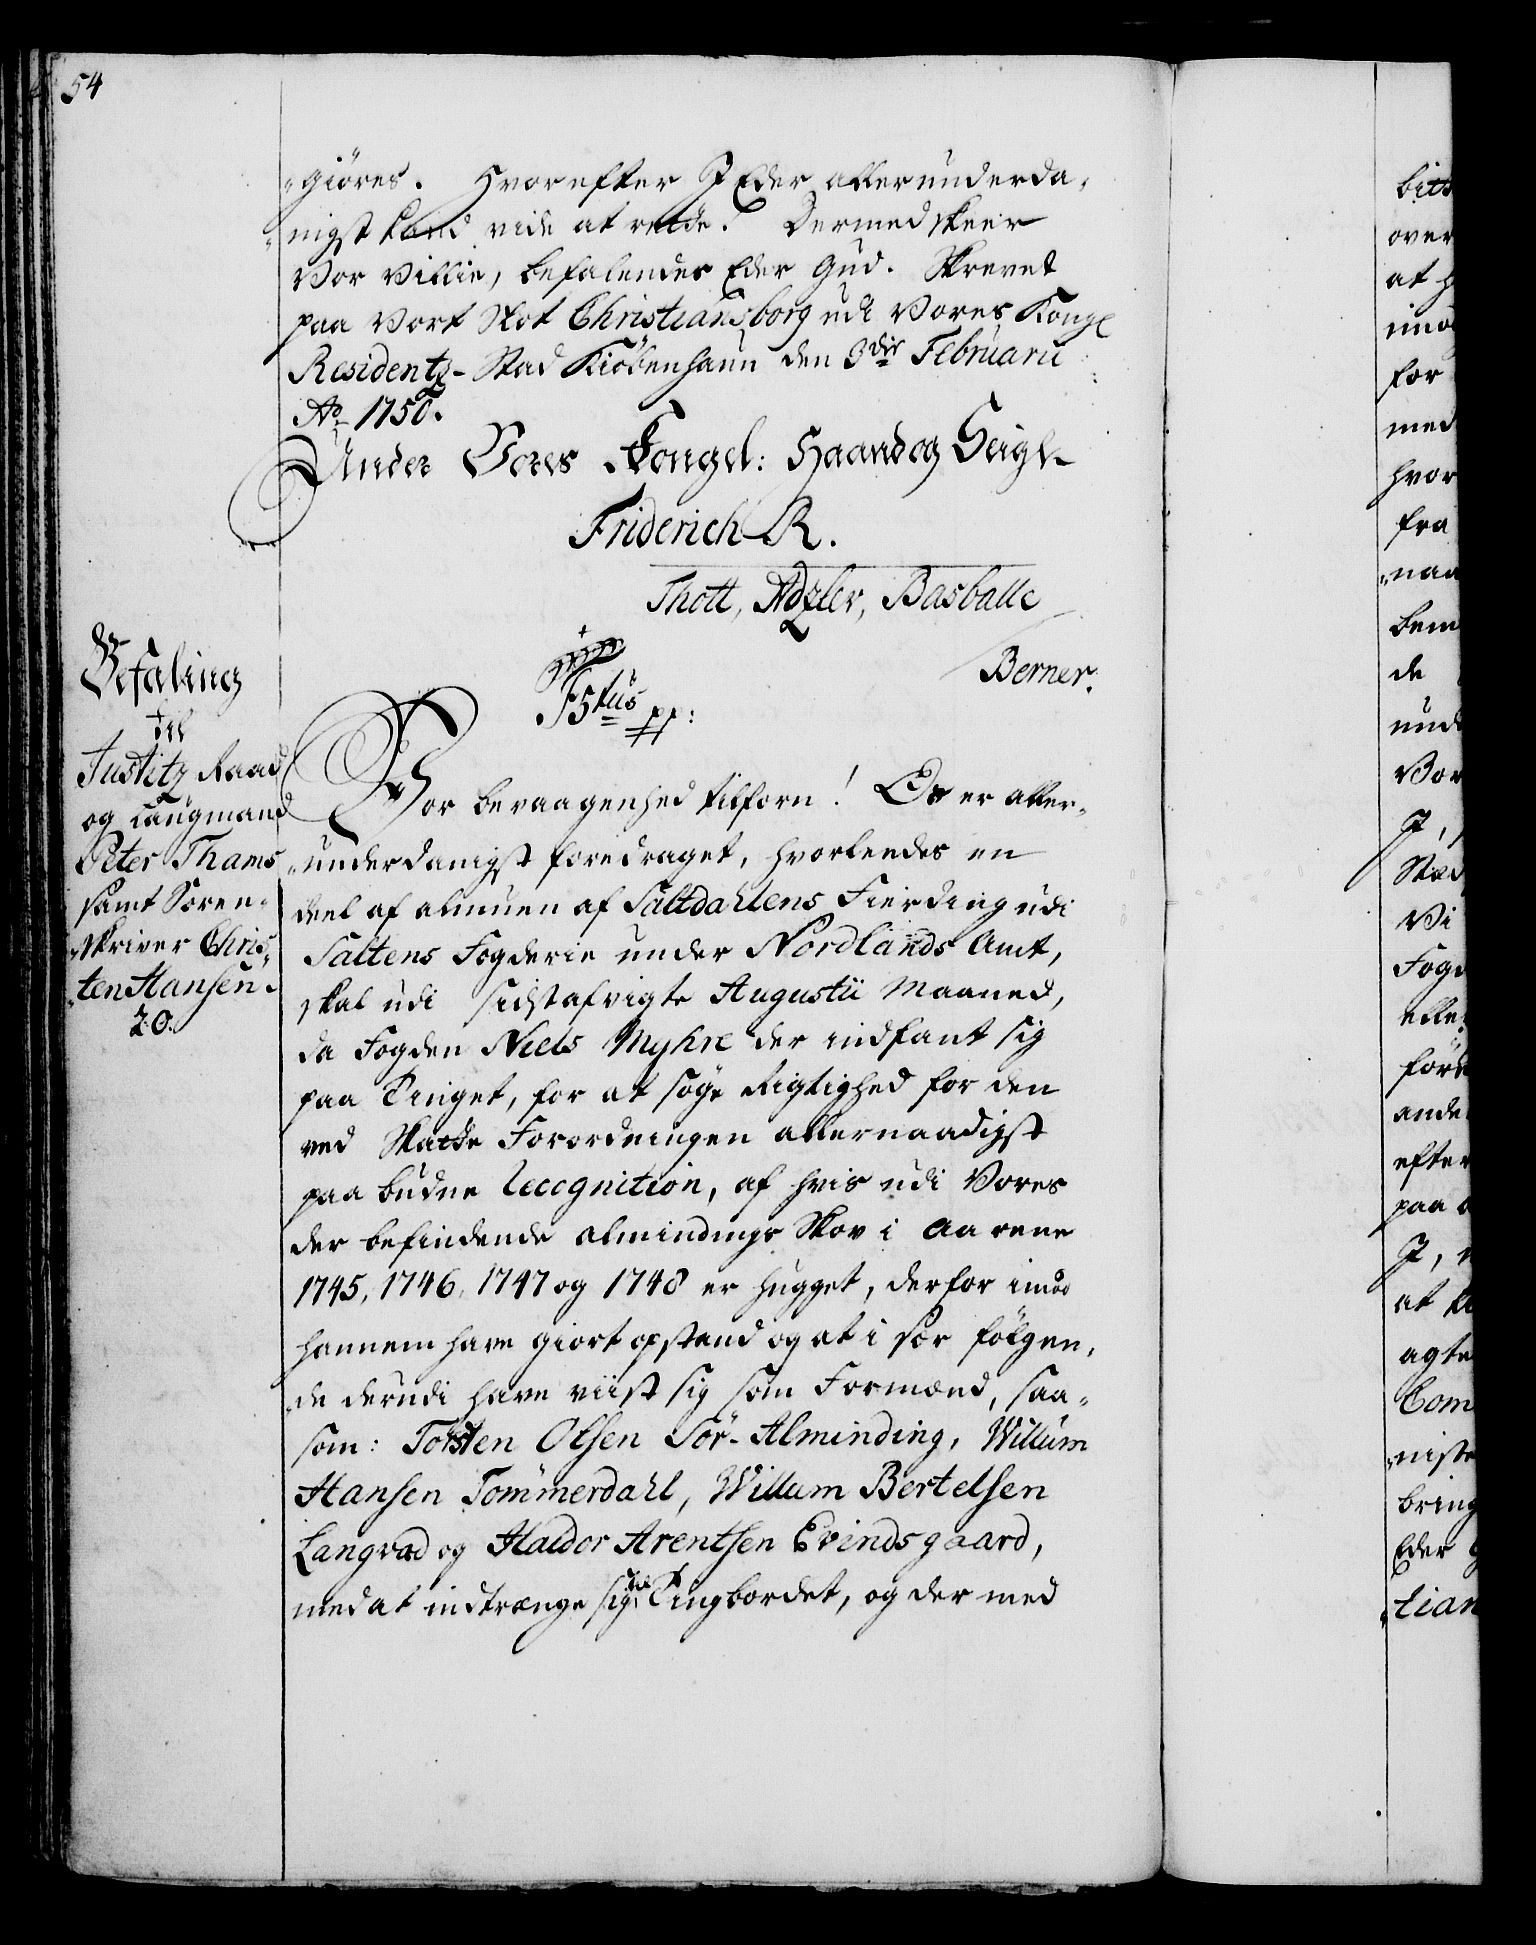 54
„giöres. Hvorefter I Eder allerunderda„
„nigst haver vide at rette. Dermed skeer
Vor Villie, befalendes Eder Gud. Skrevet
paa Vort Slot Christiansborg udi Vores Kongl
Residentz-Stad Kiöbenhaun den 3die Februarii
Ao 1750.
Under Vores Kongel: Haand og Seigl.
Friderich R.
Thott, Adzler, Basballe
Berner.
F5tus pp:
Befaling
til
Justitz Raad
og Laugmand
Peter Thams
samt Soren„
„skriver Chris„
„ten Hansen.
20.
Vor bevaagenhed tilforn! Os er aller„
„underdanigst foredraget, hvorledes en
deel af almuen af Saltdahlens Fierding udi
Saltens Fogderie under Nordlands Amt,
skal udi sidstafvigte Augustii Maaned,
da Fogden Niels Myhre der indfant sig
paa Tinget, for at söge Rigtighed for den
ved Skatte Forordningen allernaadigst
paa budne Recognition, af hvis udi Vores
der befindende almindings Skov i Aarene
1745, 1746, 1747 og 1748 er hugget, derfor imod
hannem have giort opstand og at i sær fölgen„
„de derudi have viist sig som Formænd, saa„
som: Torsten Olsen Sör-Alminding, Willum
Hansen Tömmerdahl, Willum Bertelsen
Langvad og Haldor Arentsen Evindsgaard,
med at indtrænge sig til Tingbordet, og der med
bitt
over
at h
imod
for
med
hvor
fra
„naa
bem
de
und
Vor
I,
Stæd
Vi
Fogd
elle
förd
ande
efter
paa
I,
at
agte
Com
„niste
bring
Eder
„tian